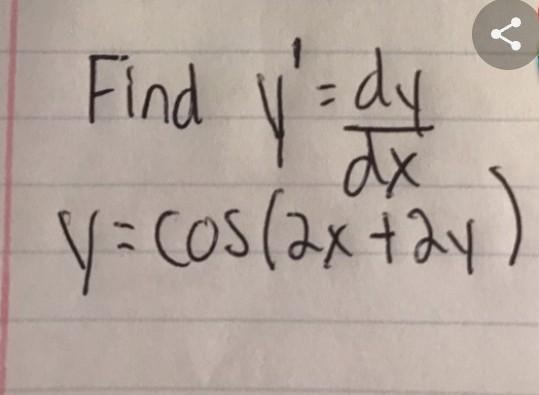 Find y' = dy/dx
y = cos(2x + 2y)